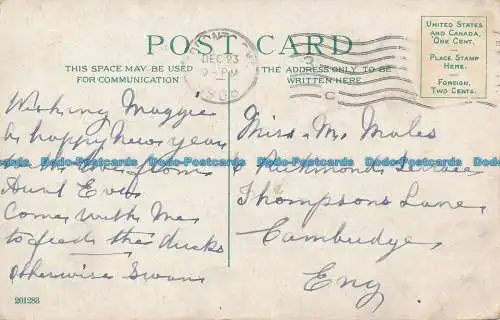 POST CARD
THIS SPACE MAY BE USED
FOR COMMUNICATION
THE ADDRESS ONLY TO BE
WRITTEN HERE
UNITED STATES
AND CANADA,
ONE CENT.
PLACE STAMP
HERE.
FOREIGN,
TWO CENTS.
DEC 23
9-PM
C
Wishing Maggie
a happy New year
from
Aunt
Come with me
to feed the ducks
otherwise Swans
Miss M. Moles
Richmond
Thompsons Lane
Cambridge
Eng
201288
Dodo-Postcards Dodo-Postcards Dodo-Postcards Dodo-Postcards Dodo-Postcards Dodo-Postcards